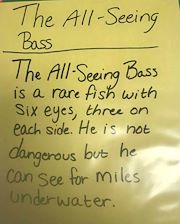 The All-Seeing
Bass
The All-Seeing Bass
is a rare fish with
six eyes, three on
each side. He is not
dangerous but he
can see for miles
underwater.